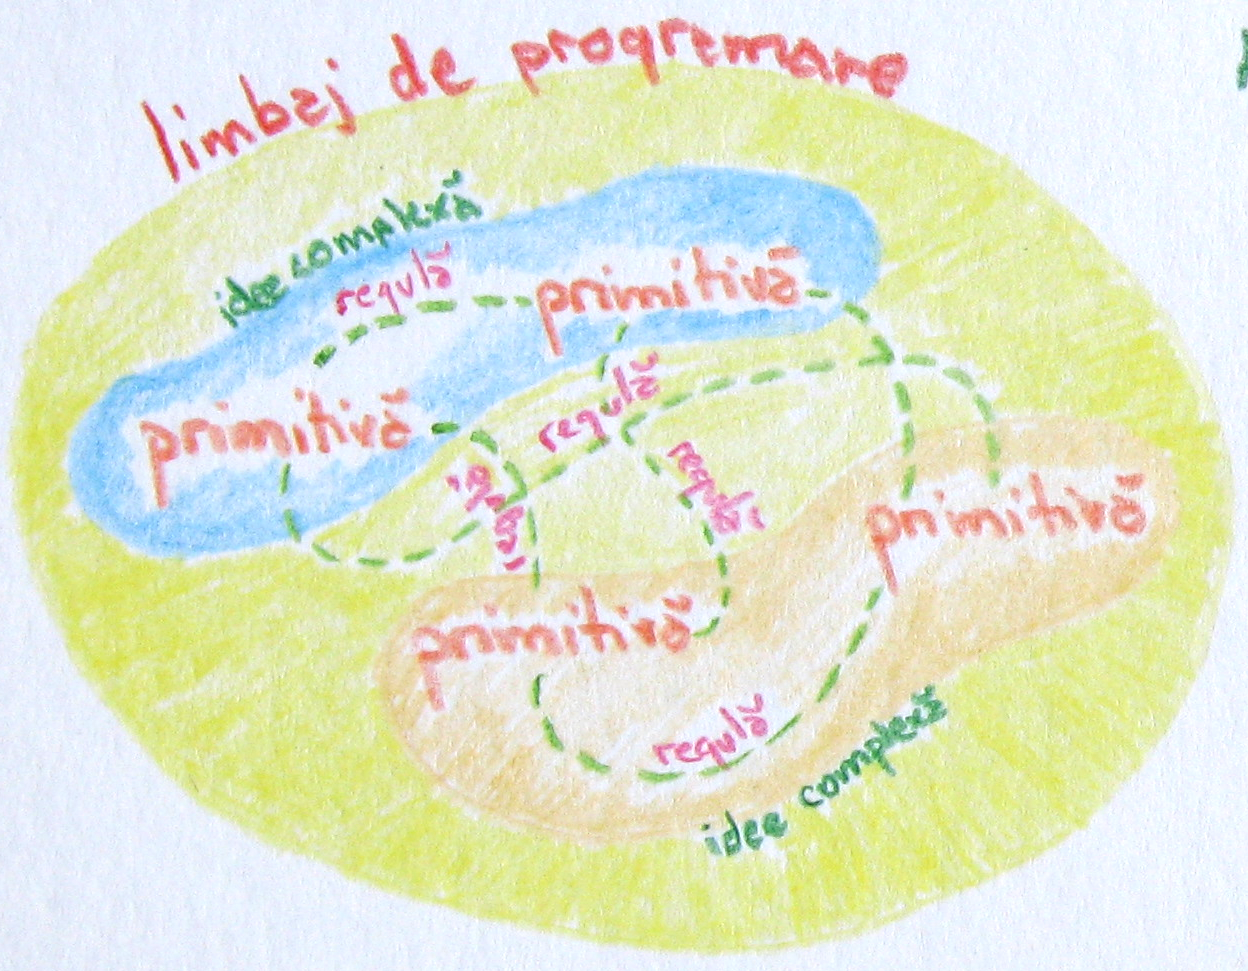 limbaj de programare
idee complexă
regulă
primitivă
primitivă
regulă
regulă
primitivă
primitivă
regulă
idee complexă